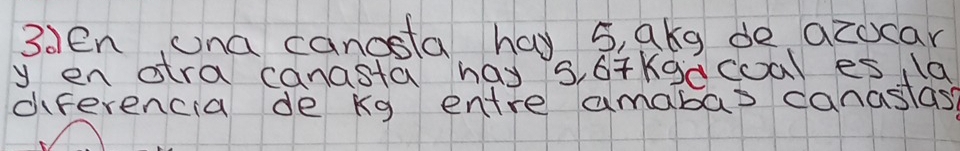 3) en una canasta hay 5,9kg de azocar
y en otra canasta hay 5,67Kg d coal es la
diferencia de Kg entre amabas canastas?